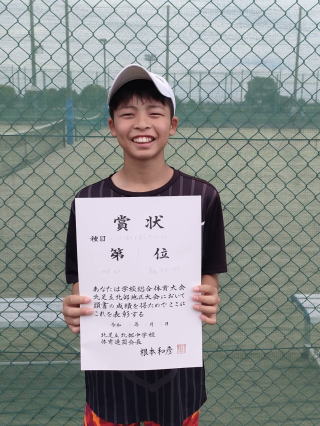 賞状
種目
第 位
あなたは学校総合体育大会
北足立北部地区大会において
頭書の成績を得たのでここに
これを表彰する
令和 年 月 日
北足立北部中学校
体育連盟会長
根本和彦